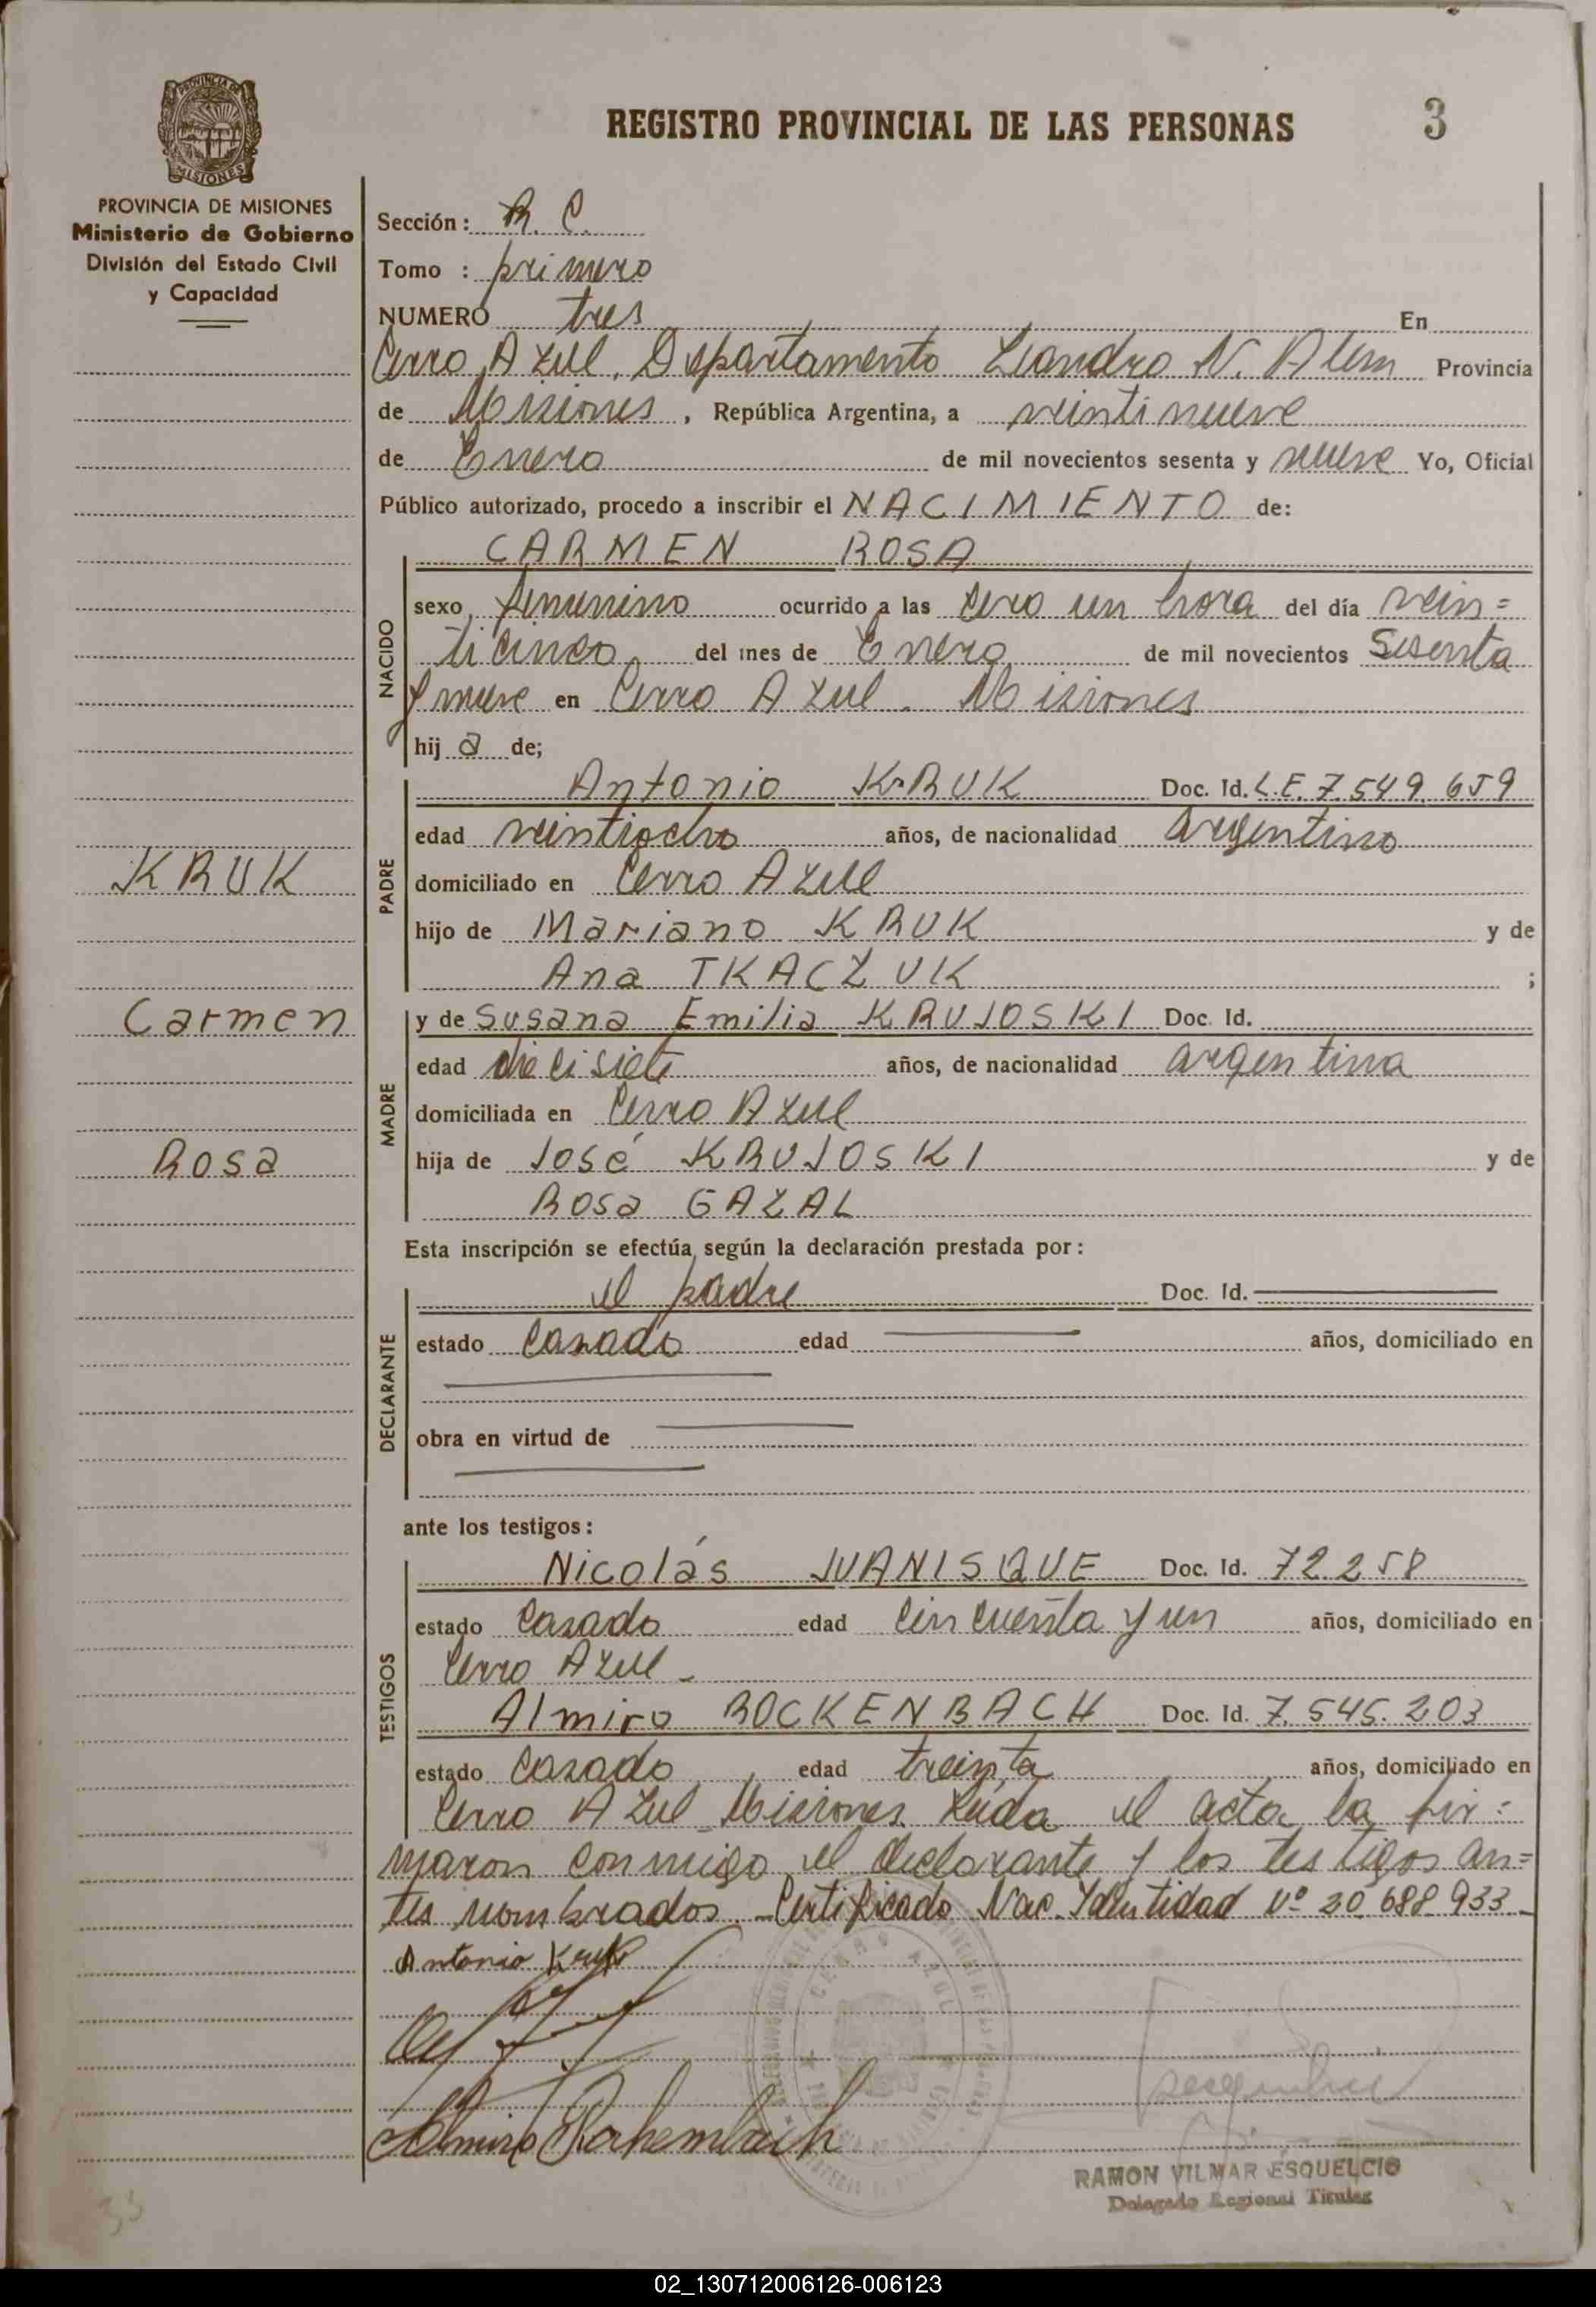 REGISTRO PROVINCIAL DE LAS PERSONAS
3
PROVINCIA DE
MISIONES
PROVINCIA DE MISIONES
Ministerio de Gobierno
División del Estado Civil
y Capacidad
KRUK
Carmen
Rosa
Sección: R. C.
Tomo : primero
NUMERO tres En
Cerro Azul, Departamento Leandro N. Alem Provincia
de Misiones, República Argentina, a veintinueve
de Enero de mil novecientos sesenta y nueve Yo, Oficial
Público autorizado, procedo a inscribir el NACIMIENTO de:
NACIDO
CARMEN ROSA
sexo femenino ocurrido a las cero un hora del día vein=
ticinco del mes de Enero de mil novecientos Sesenta
y nueve en Cerro Azul. Misiones
hij a de;
PADRE
Antonio KRUK Doc. Id. L.E. 7.549.659
edad veintiocho años, de nacionalidad argentino
domiciliado en Cerro Azul
hijo de Mariano KRUK y de
Ana TKACZUK ;
MADRE
y de Susana Emilia KRUJOSKI Doc. Id.
edad diecisiete años, de nacionalidad argentina
domiciliada en Cerro Azul
hija de José KRUJOSKI y de
Rosa GAZAL
Esta inscripción se efectúa según la declaración prestada por:
DECLARANTE
el padre Doc. Id.
estado Casado edad años, domiciliado en
obra en virtud de
ante los testigos:
TESTIGOS
Nicolás JUANISQUE Doc. Id. 72258
estado Casado edad Cincuenta y un años, domiciliado en
Cerro Azul -
Almiro ROCKENBACH Doc. Id. 7.545.203
estado Casado edad treinta años, domiciliado en
Cerro Azul Misiones. Leída el acta la fir=
maron conmigo el declarante y los testigos an=
tes nombrados. - Certificado Nac. Identidad Nº 20 688 933 -
Antonio Kruk
Almiro Rockembach
RAMON VILMAR ESQUELCIO
Delegado Regional Titular
33
02_130712006126-006123